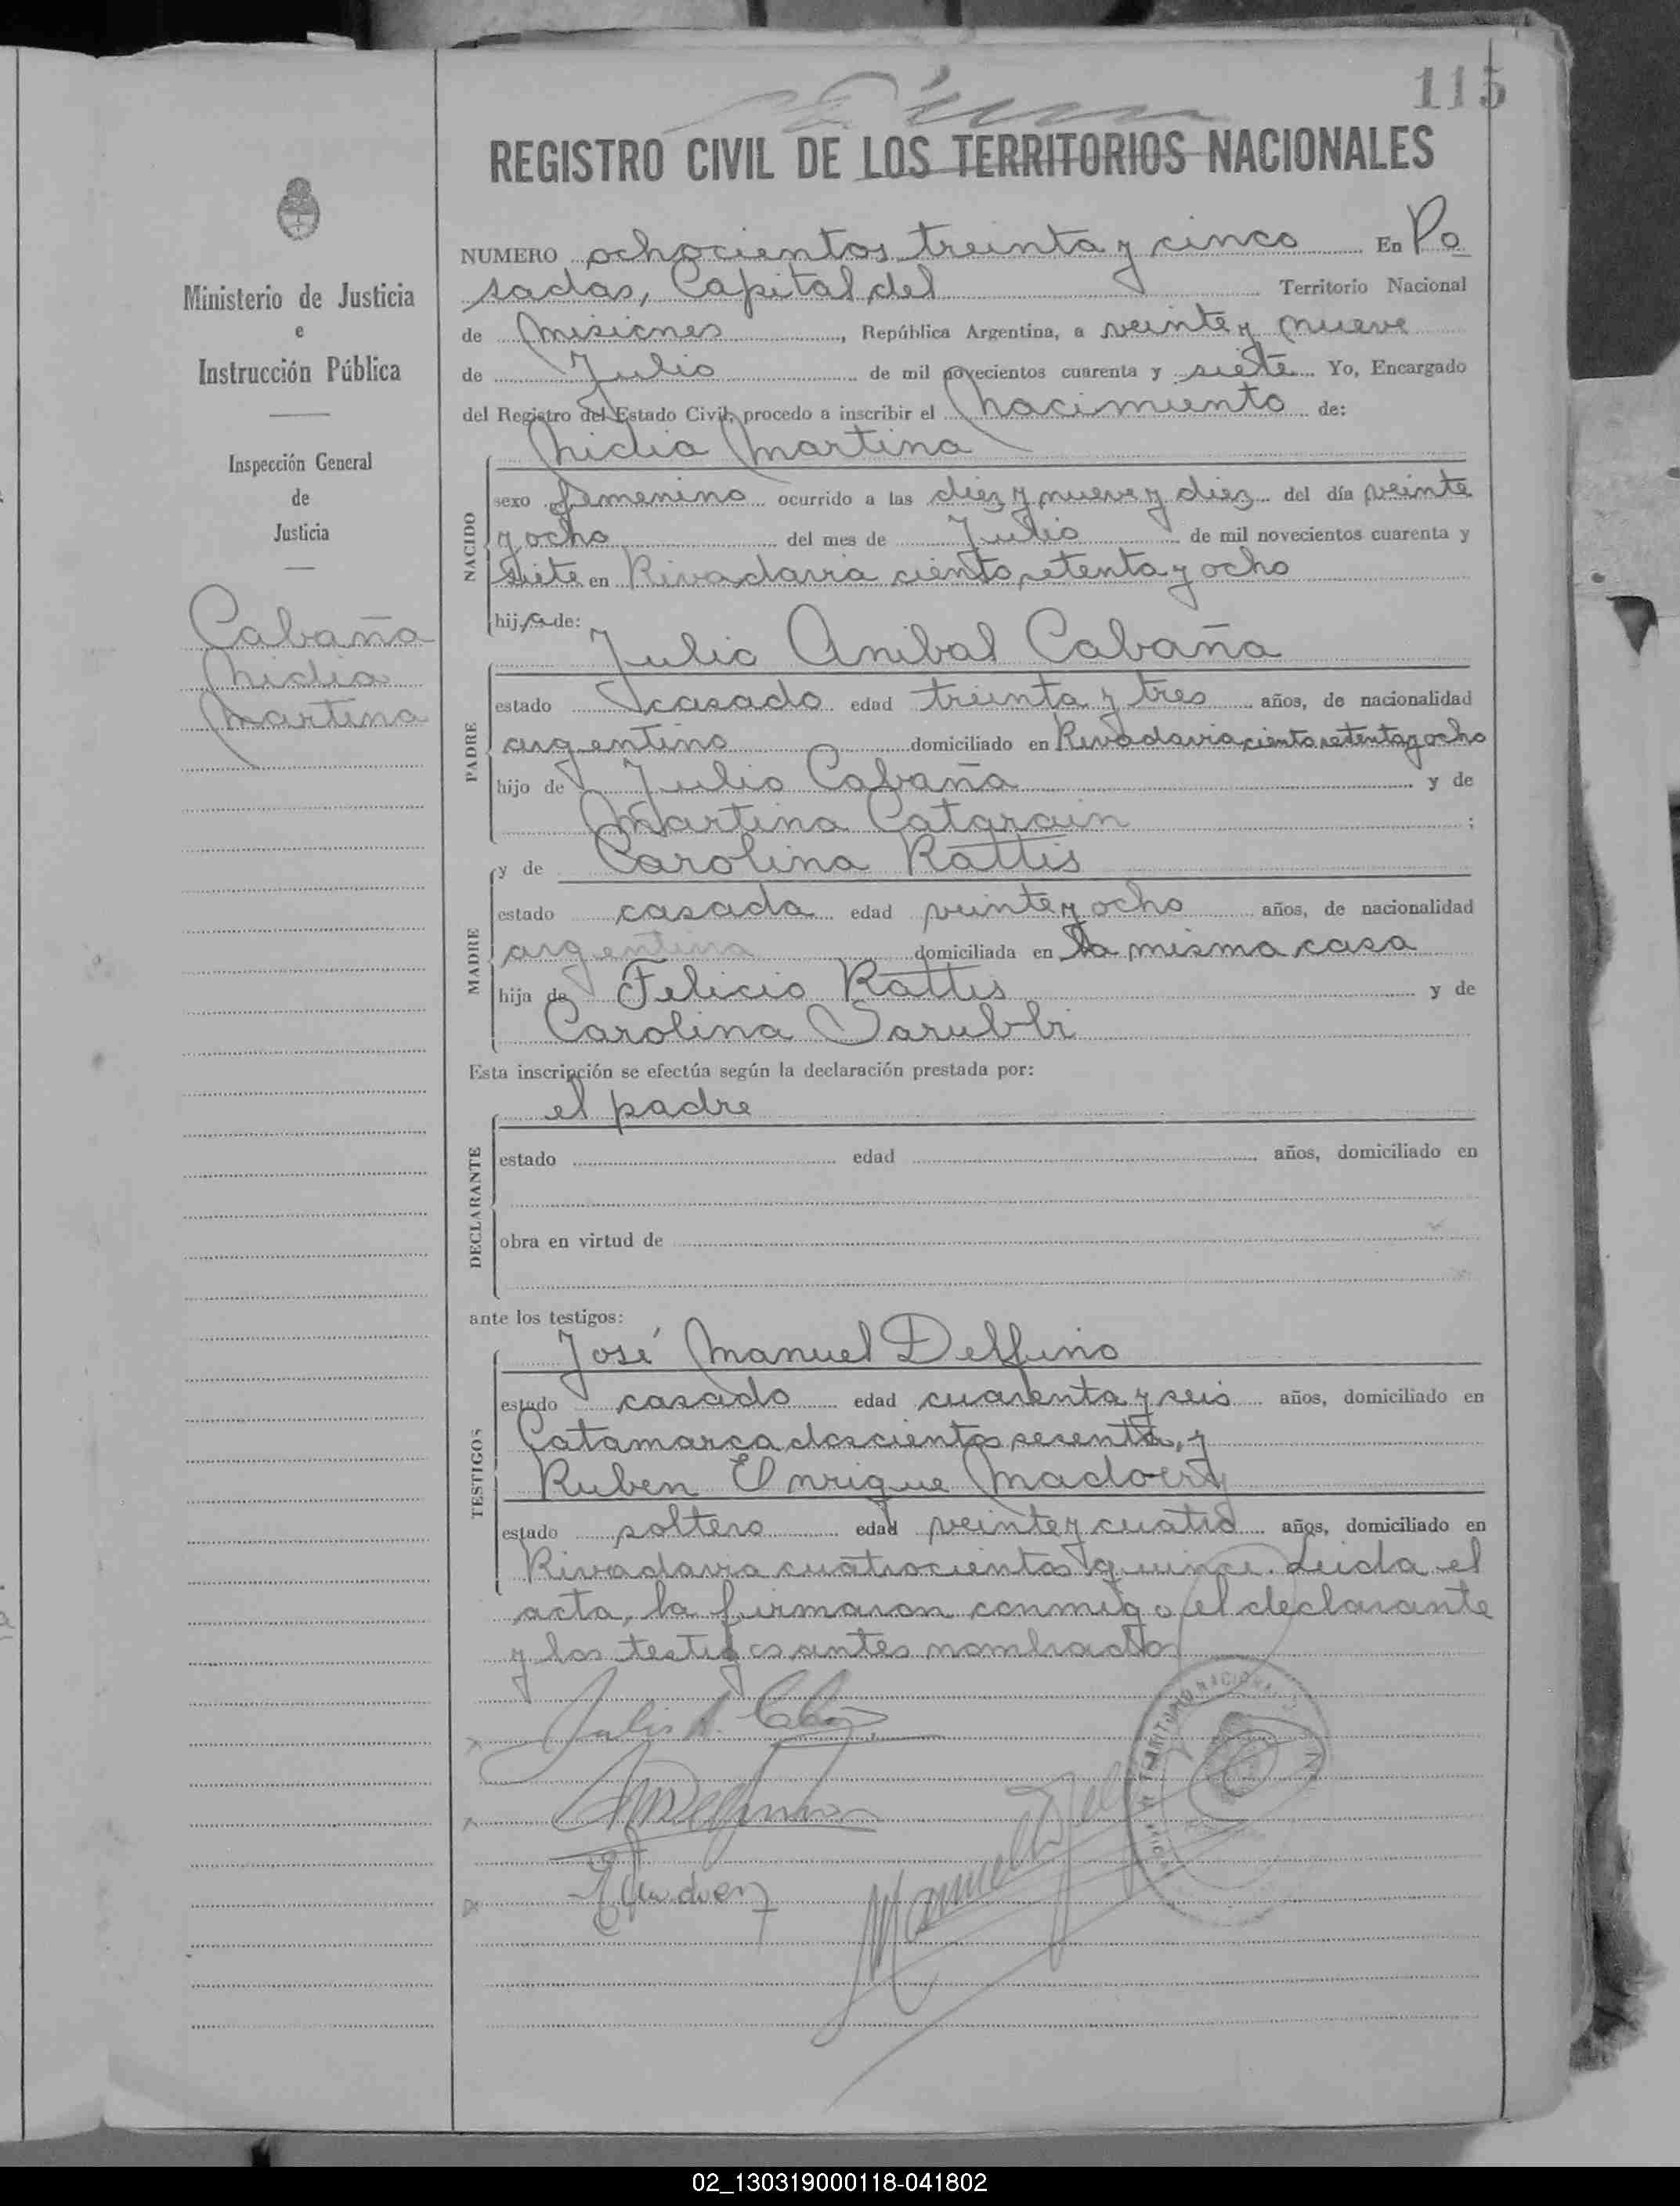 115
REGISTRO CIVIL DE LOS TERRITORIOS NACIONALES
NUMERO ochocientos treinta y cinco En Po
sadas, Capital del Territorio Nacional
de Misiones, República Argentina, a veinte y nueve
de Julio de mil novecientos cuarenta y siete Yo, Encargado
del Registro del Estado Civil, procedo a inscribir el Nacimiento de:
Nidia Martina
NACIDO
sexo femenino ocurrido a las diez y nueve y diez del día veinte
y ocho del mes de Julio de mil novecientos cuarenta y
siete en Rivadavia ciento setenta y ocho
hija de:
Julio Anibal Cabaña
PADRE
estado casado edad treinta y tres años, de nacionalidad
argentino domiciliado en Rivadavia ciento setenta y ocho
hijo de Julio Cabaña y de
Martina Catarain;
y de Carolina Rattis
MADRE
estado casada edad veinte y ocho años, de nacionalidad
argentina domiciliada en la misma casa
hija de Felicio Rattis y de
Carolina Sarubbi
Esta inscripción se efectúa según la declaración prestada por:
el padre
DECLARANTE
estado edad años, domiciliado en
obra en virtud de
ante los testigos:
José Manuel Delfino
TESTIGOS
estado casado edad cuarenta y seis años, domiciliado en
Catamarca doscientos sesenta, y
Ruben Enrique Madoery
estado soltero edad veinte y cuatro años, domiciliado en
Rivadavia cuatrocientos quince. Leida el
acta, la firmaron conmigo, el declarante
y los testigos antes nombrados
Julio A. Cabaña
Ministerio de Justicia
e
Instrucción Pública
Inspección General
de
Justicia
Cabaña
Nidia
Martina
02_130319000118-041802